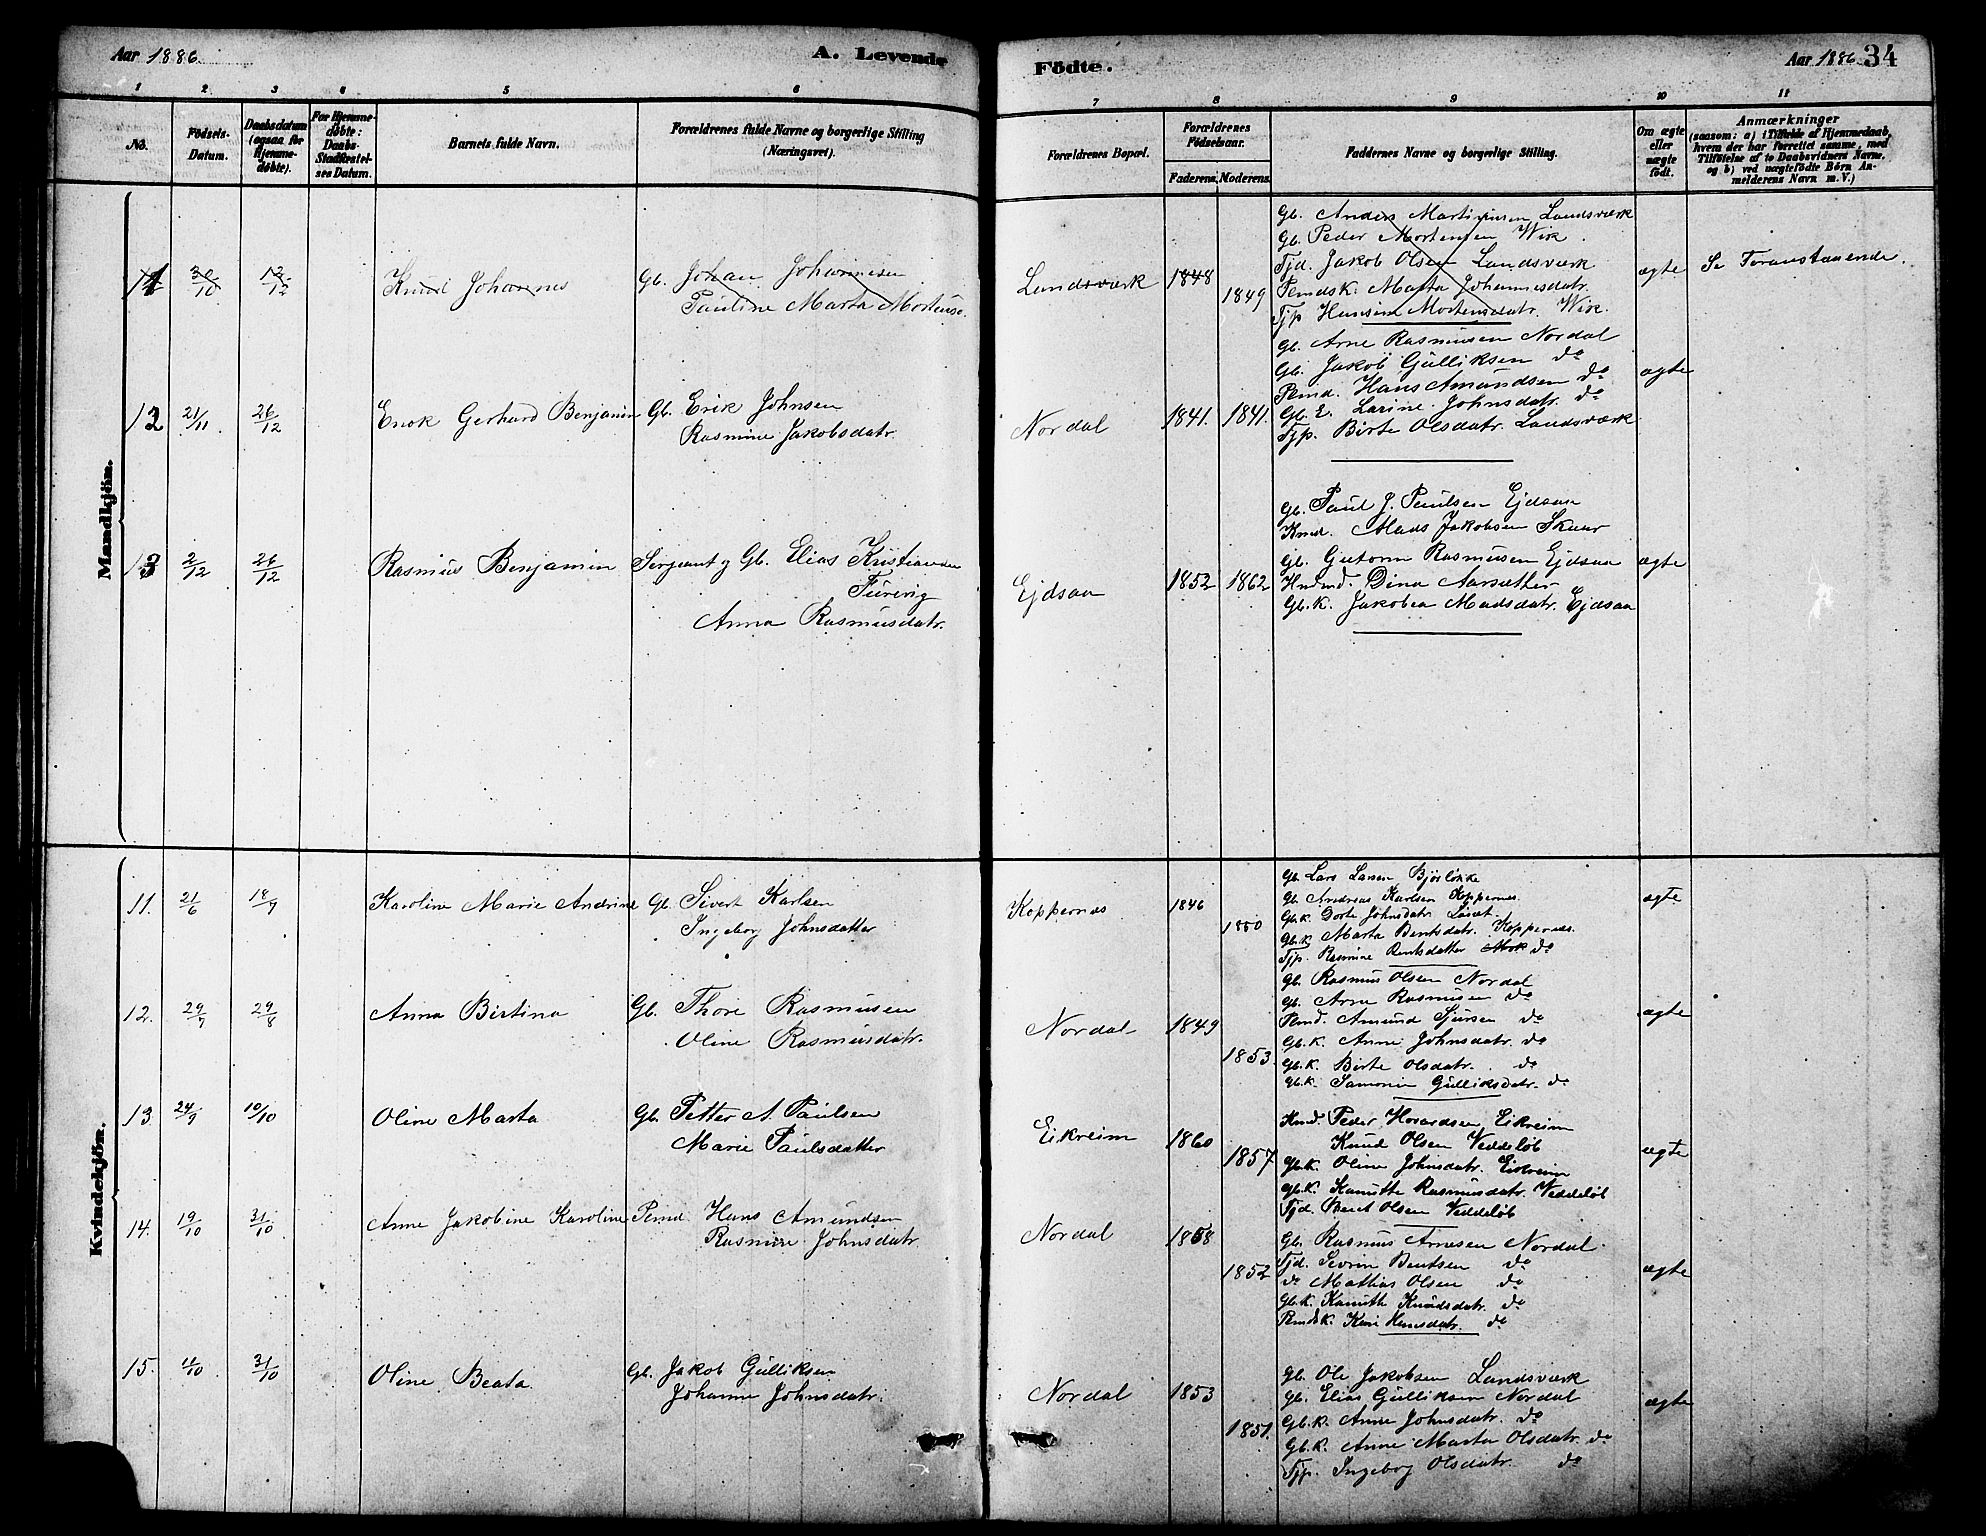 Aar 1886. A. Levende Födte. Aar 1886 34
1 2 3 4 5 6 7 8 9 10 11
No. Födsels-Datum. Daabsdatum (ogsaa for Hjemme-döbte). For Hjemme-döbte: Daabs-Stadfæstel-ses Datum. Barnets fulde Navn. Forældrenes fulde Navne og borgerlige Stilling (Næringsvei). Forældrenes Bopæl. Forældrenes Födselsaar. Faderens. Moderens. Faddernes Navne og borgerlige Stilling. Om ægte eller uægte födt. Anmærkninger
(saasom: a) i Tilfælde af Hjemmedaab,
hvem der har forrettet samme, med
Tilföielse af to Daabsvidners Navne,
og b) ved uægtefödte Börn An-
melderens Navn m. V.)
Mandkjön.
30/10 12/12 Knud Johannes Gb. Johan Johannesen
Pauline Marta Mortensd.
Landsværk 1848 1849
Gb. Anders Martinusen Landsværk
Gb. Peder Mortensen Wik.
Tjd. Jakob Olsen Landsværk
Pmdsk. Marta Johannesdatr.
Tjp Hansine Mortensdatr. Wik.
ægte Se Foranstaaende.
12 21/11 26/12 Enok Gerhard Benjamin Gb. Erik Johnsen
Rasmine Jakobsdatr.
Nordal 1841. 1841.
Gb. Arne Rasmusen Nordal
Gb. Jakob Gulliksen do
Pmd. Hans Amundsen do
Gb. E. Larine Johnsdatr. do
Tjp. Birte Olsdatr. Landsværk
ægte
13 2/12 26/12 Rasmus Benjamin Sergeant og Gb. Elias Kristiansen
Furevig
Anna Rasmusdatr.
Ejdsaa 1852 1862
Gb. Paul J. Paulsen Ejdsaa
Kmd. Mads Jakobsen Skaar
Gb. Gutorm Rasmusen Ejdsaa
Dina Aarsæther
Gb. K. Jakobea Madsdatr. Ejdsaa
ægte
Kvindekjön.
11. 21/6 18/9 Karoline Marie Andrine Gb. Sivert Karlsen
Ingeborg Johnsdatter
Koppernæs 1846 1850
Gb. Lars Larsen Bjørløkke
Gb. Andreas Karlsen Koppernæs
Gb.K. Dorte Johnsdatr. Løset
Gb.K. Marta Bentsdatr. Koppernæs.
Tjp. Rasmine Bentsdatter do
ægte
12. 29/7 29/8 Anna Birtina Gb. Thore Rasmusen
Oline Rasmusdatr.
Nordal 1849 1853.
Gb. Rasmus Olsen Nordal
Gb. Arne Rasmusen do
Pmd. Amund Sjursen do
Gb.K. Anne Johnsdatr. do
Gb.K. Birte Olsdatr. do
Gb.K. Samonie Gulliksdatr. do
ægte
13. 24/9 10/10 Oline Marta Gb. Petter A Paulsen
Marie Paulsdatter
Eikreim 1860 1857
Kmd. Peder Hovardsen Eikreim
Knud Olsen Veddeløb
Gb.K. Oline Johnsdatr. Eikreim
Gb.K. Kanutte Rasmusdatr. Veddeløb
Tjd. Berit Olsen Veddeløb
ægte
14. 19/10 31/10 Anne Jakobine Karoline Pmd Hans Amundsen
Rasmine Johnsdatr
Nordal 1858 1852
Gb. Rasmus Arnesen Nordal.
Tjd. Sivrin Bentsen do
do Mathias Olsen do
Gb.K. Kanutte Knudsdatr. do
Pmdsk. Kari Hansdatr. do
ægte
15. 31/10 Oline Beata. Gb. Jakob Gulliksen
Johanne Johnsdatr.
Nordal 1853 1851.
Gb. Ole Jakobsen Landsværk
Gb. Elias Gulliksen Nordal
Gb.K. Anne Johnsdatr. do
Gb.K. Anne Marta Olsdatr. do
Tjp. Ingeborg Olsdatr. do
ægte